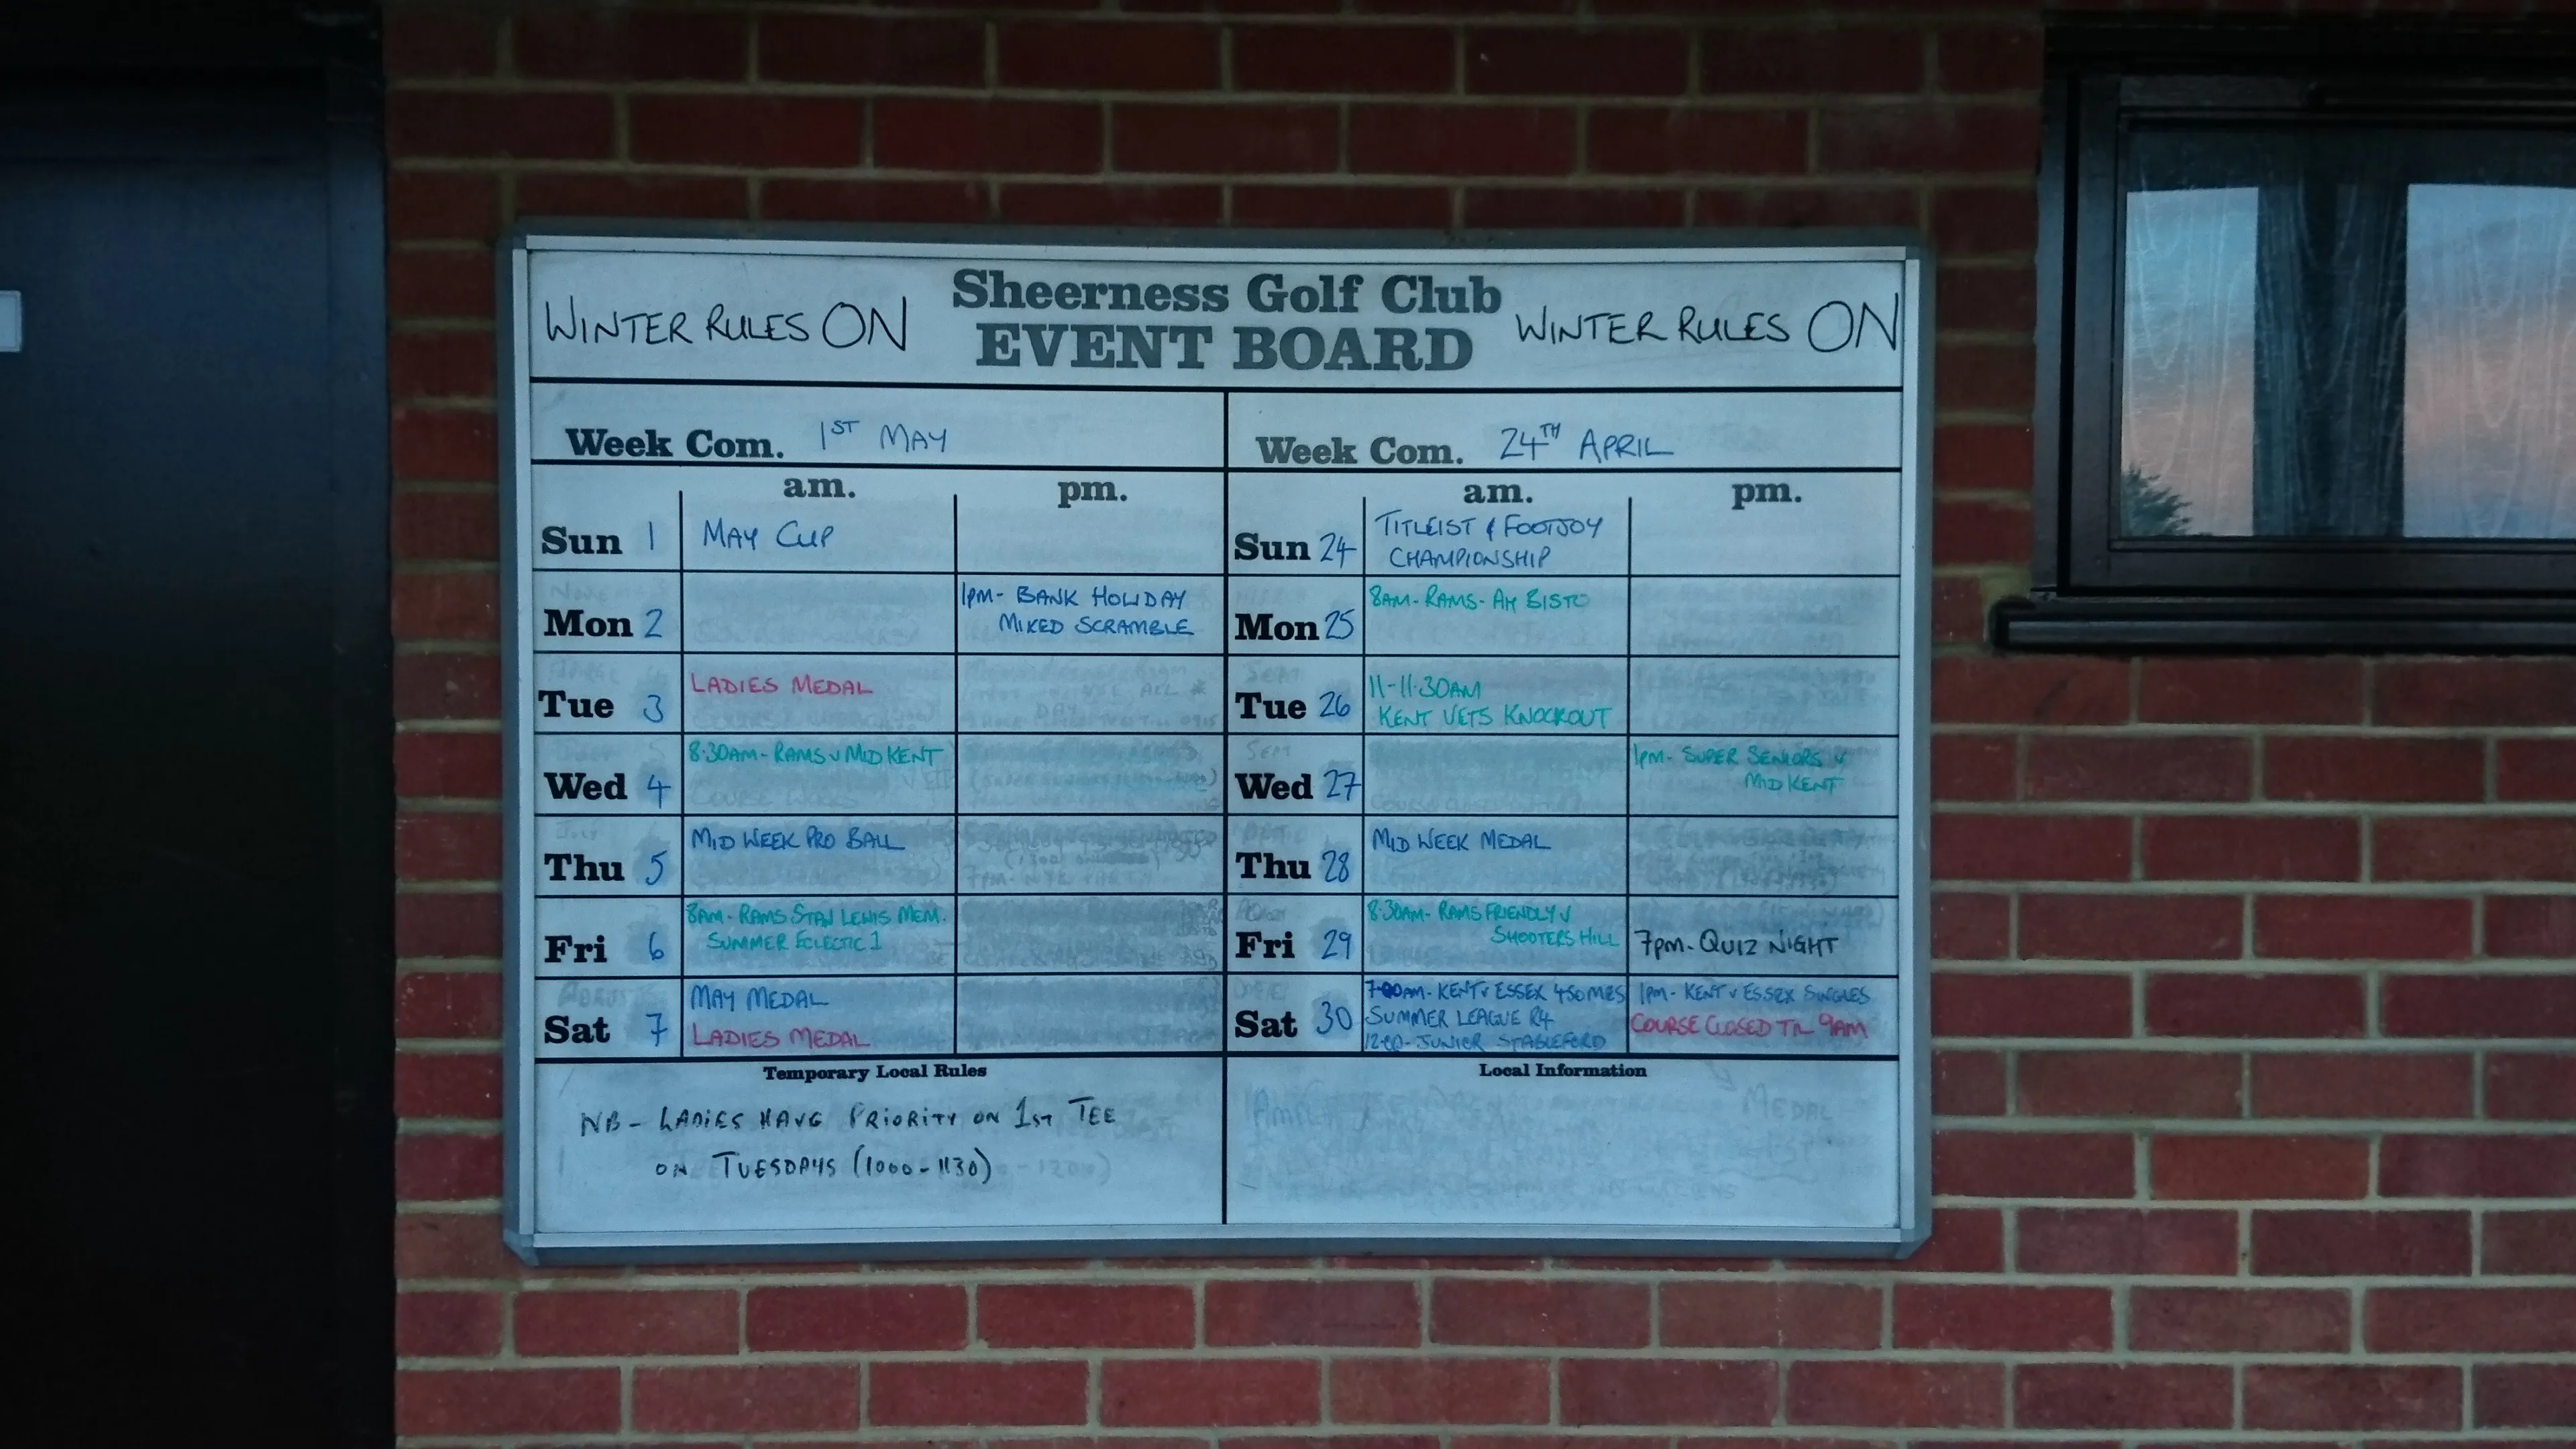 Sheerness Golf Club
EVENT BOARD
WINTER RULES ON
WINTER RULES ON
Week Com. 1ST MAY
am. pm.
Sun 1 MAY CUP
Mon 2 1PM- BANK HOLIDAY
MIXED SCRAMBLE
Tue 3 LADIES MEDAL
Wed 4 8·30AM- RAMS v MID KENT
Thu 5 MID WEEK PRO BALL
Fri 6 8AM- RAMS STAN LEWIS MEM.
SUMMER ECLECTIC 1
Sat 7 MAY MEDAL
LADIES MEDAL
Temporary Local Rules
NB- LADIES HAVE PRIORITY ON 1ST TEE
ON TUESDAYS (1000-1130)
Week Com. 24TH APRIL
am. pm.
Sun 24 TITLEIST & FOOTJOY
CHAMPIONSHIP
Mon 25 8AM- RAMS- AM BISTO
Tue 26 11-11·30AM
KENT VETS KNOCKOUT
Wed 27 1PM- SUPER SENIORS v
MID KENT
Thu 28 MID WEEK MEDAL
Fri 29 8·30AM- RAMS FRIENDLY v
SHOOTERS HILL
7PM- QUIZ NIGHT
Sat 30 7·00AM- KENT v ESSEX 4SOMES
SUMMER LEAGUE R4
12·00- JUNIOR STABLEFORD
1PM- KENT v ESSEX SINGLES
COURSE CLOSED TIL 9AM
Local Information